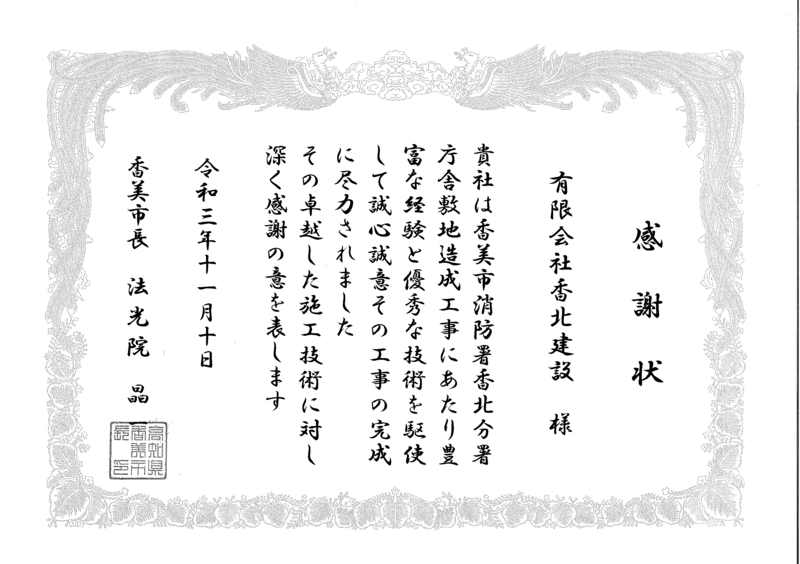 感謝状
有限会社香北建設 様
貴社は香美市消防署香北分署
庁舎敷地造成工事にあたり豊
富な経験と優秀な技術を駆使
して誠心誠意その工事の完成
に尽力されました
その卓越した施工技術に対し
深く感謝の意を表します
令和三年十一月十日
香美市長 法光院 晶一
高知県
香美市
長之印